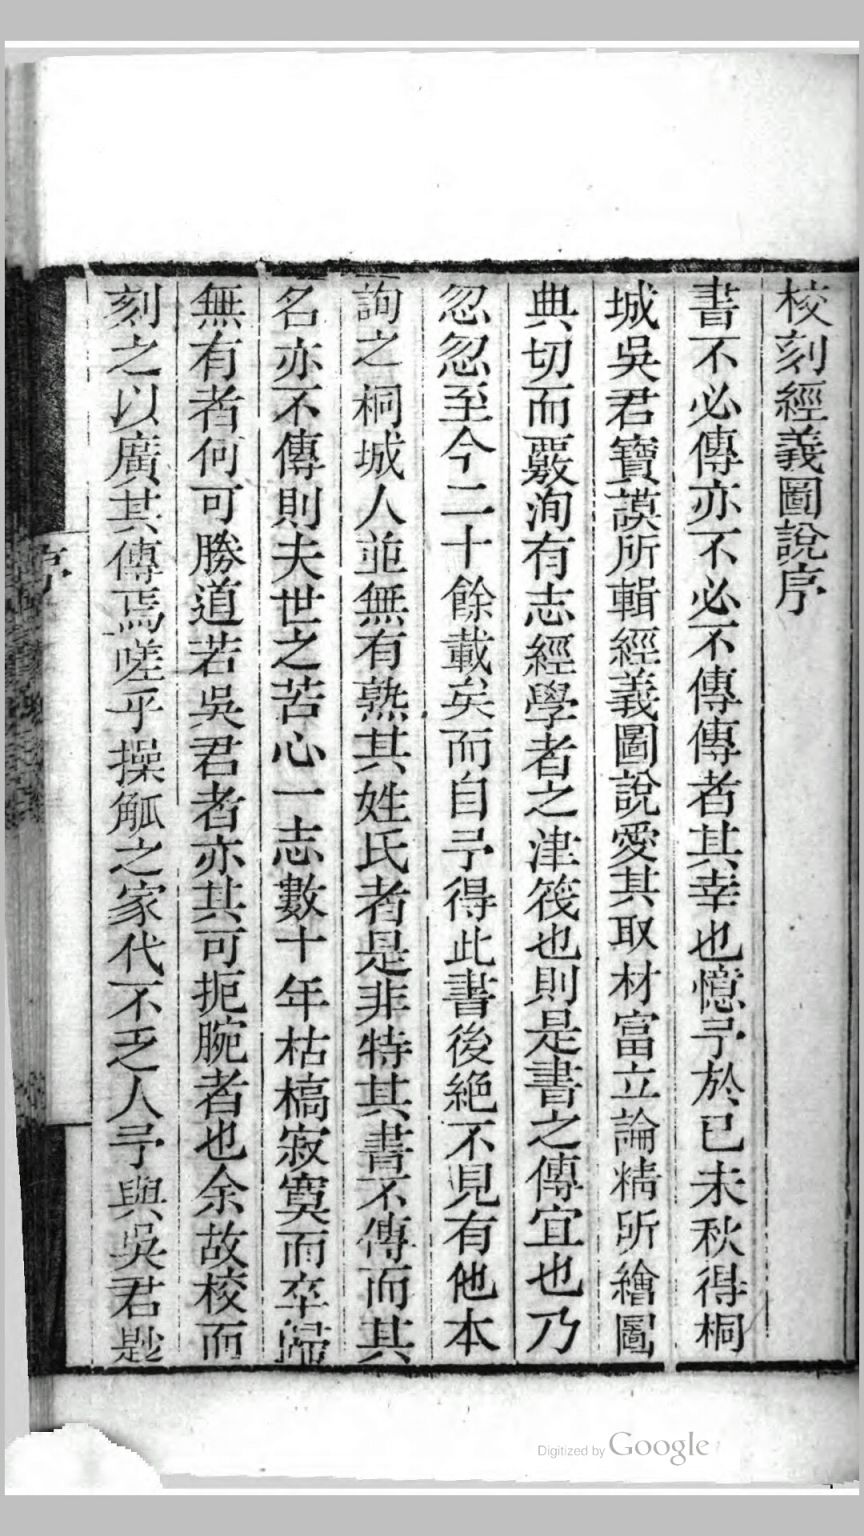 校刻經義圖說序
書不必傳亦不必不傳傳者其幸也憶予於已未秋得桐
城吳君寶謨所輯經義圖說愛其取材富立論精所繪圖
典切而覈洵有志經學者之津筏也則是書之傳宜也乃
忽忽至今二十餘載矣而自予得此書後絕不見有他本
詢之桐城人並無有熟其姓氏者是非特其書不傳而其
名亦不傳則夫世之苦心一志數十年枯槁寂寞而卒歸
無有者何可勝道若吳君者亦其可扼腕者也余故校而
刻之以廣其傳焉嗟乎操觚之家代不乏人予與吳君尠
序
Digitized by Google